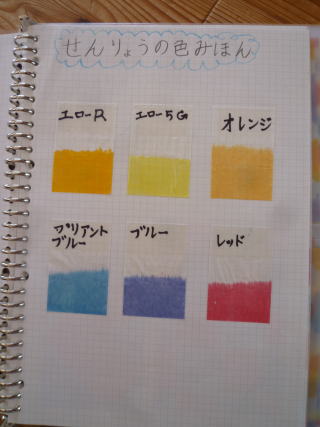 せんりょうの色みほん
エローR
エロー5G
オレンジ
ブリアント
ブルー
ブルー
レッド